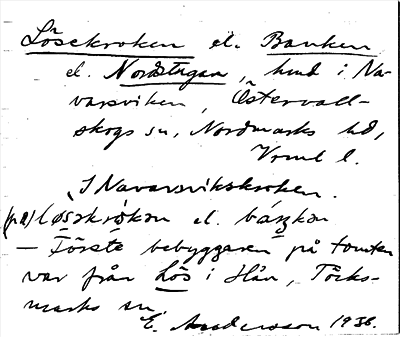 Lösekroken el. Banken
el. Nordstugan, hmd i Na-
varsviken, Östervall-
skogs sn, Nordmarks hd,
Vrml l.
I Navarsvikskroken.
(på) lǿsəkrókən el. báŋkən
— Förste bebyggaren på tomten
var från Lös i Hån, Töcks-
marks sn.
E. Andersson 1938.